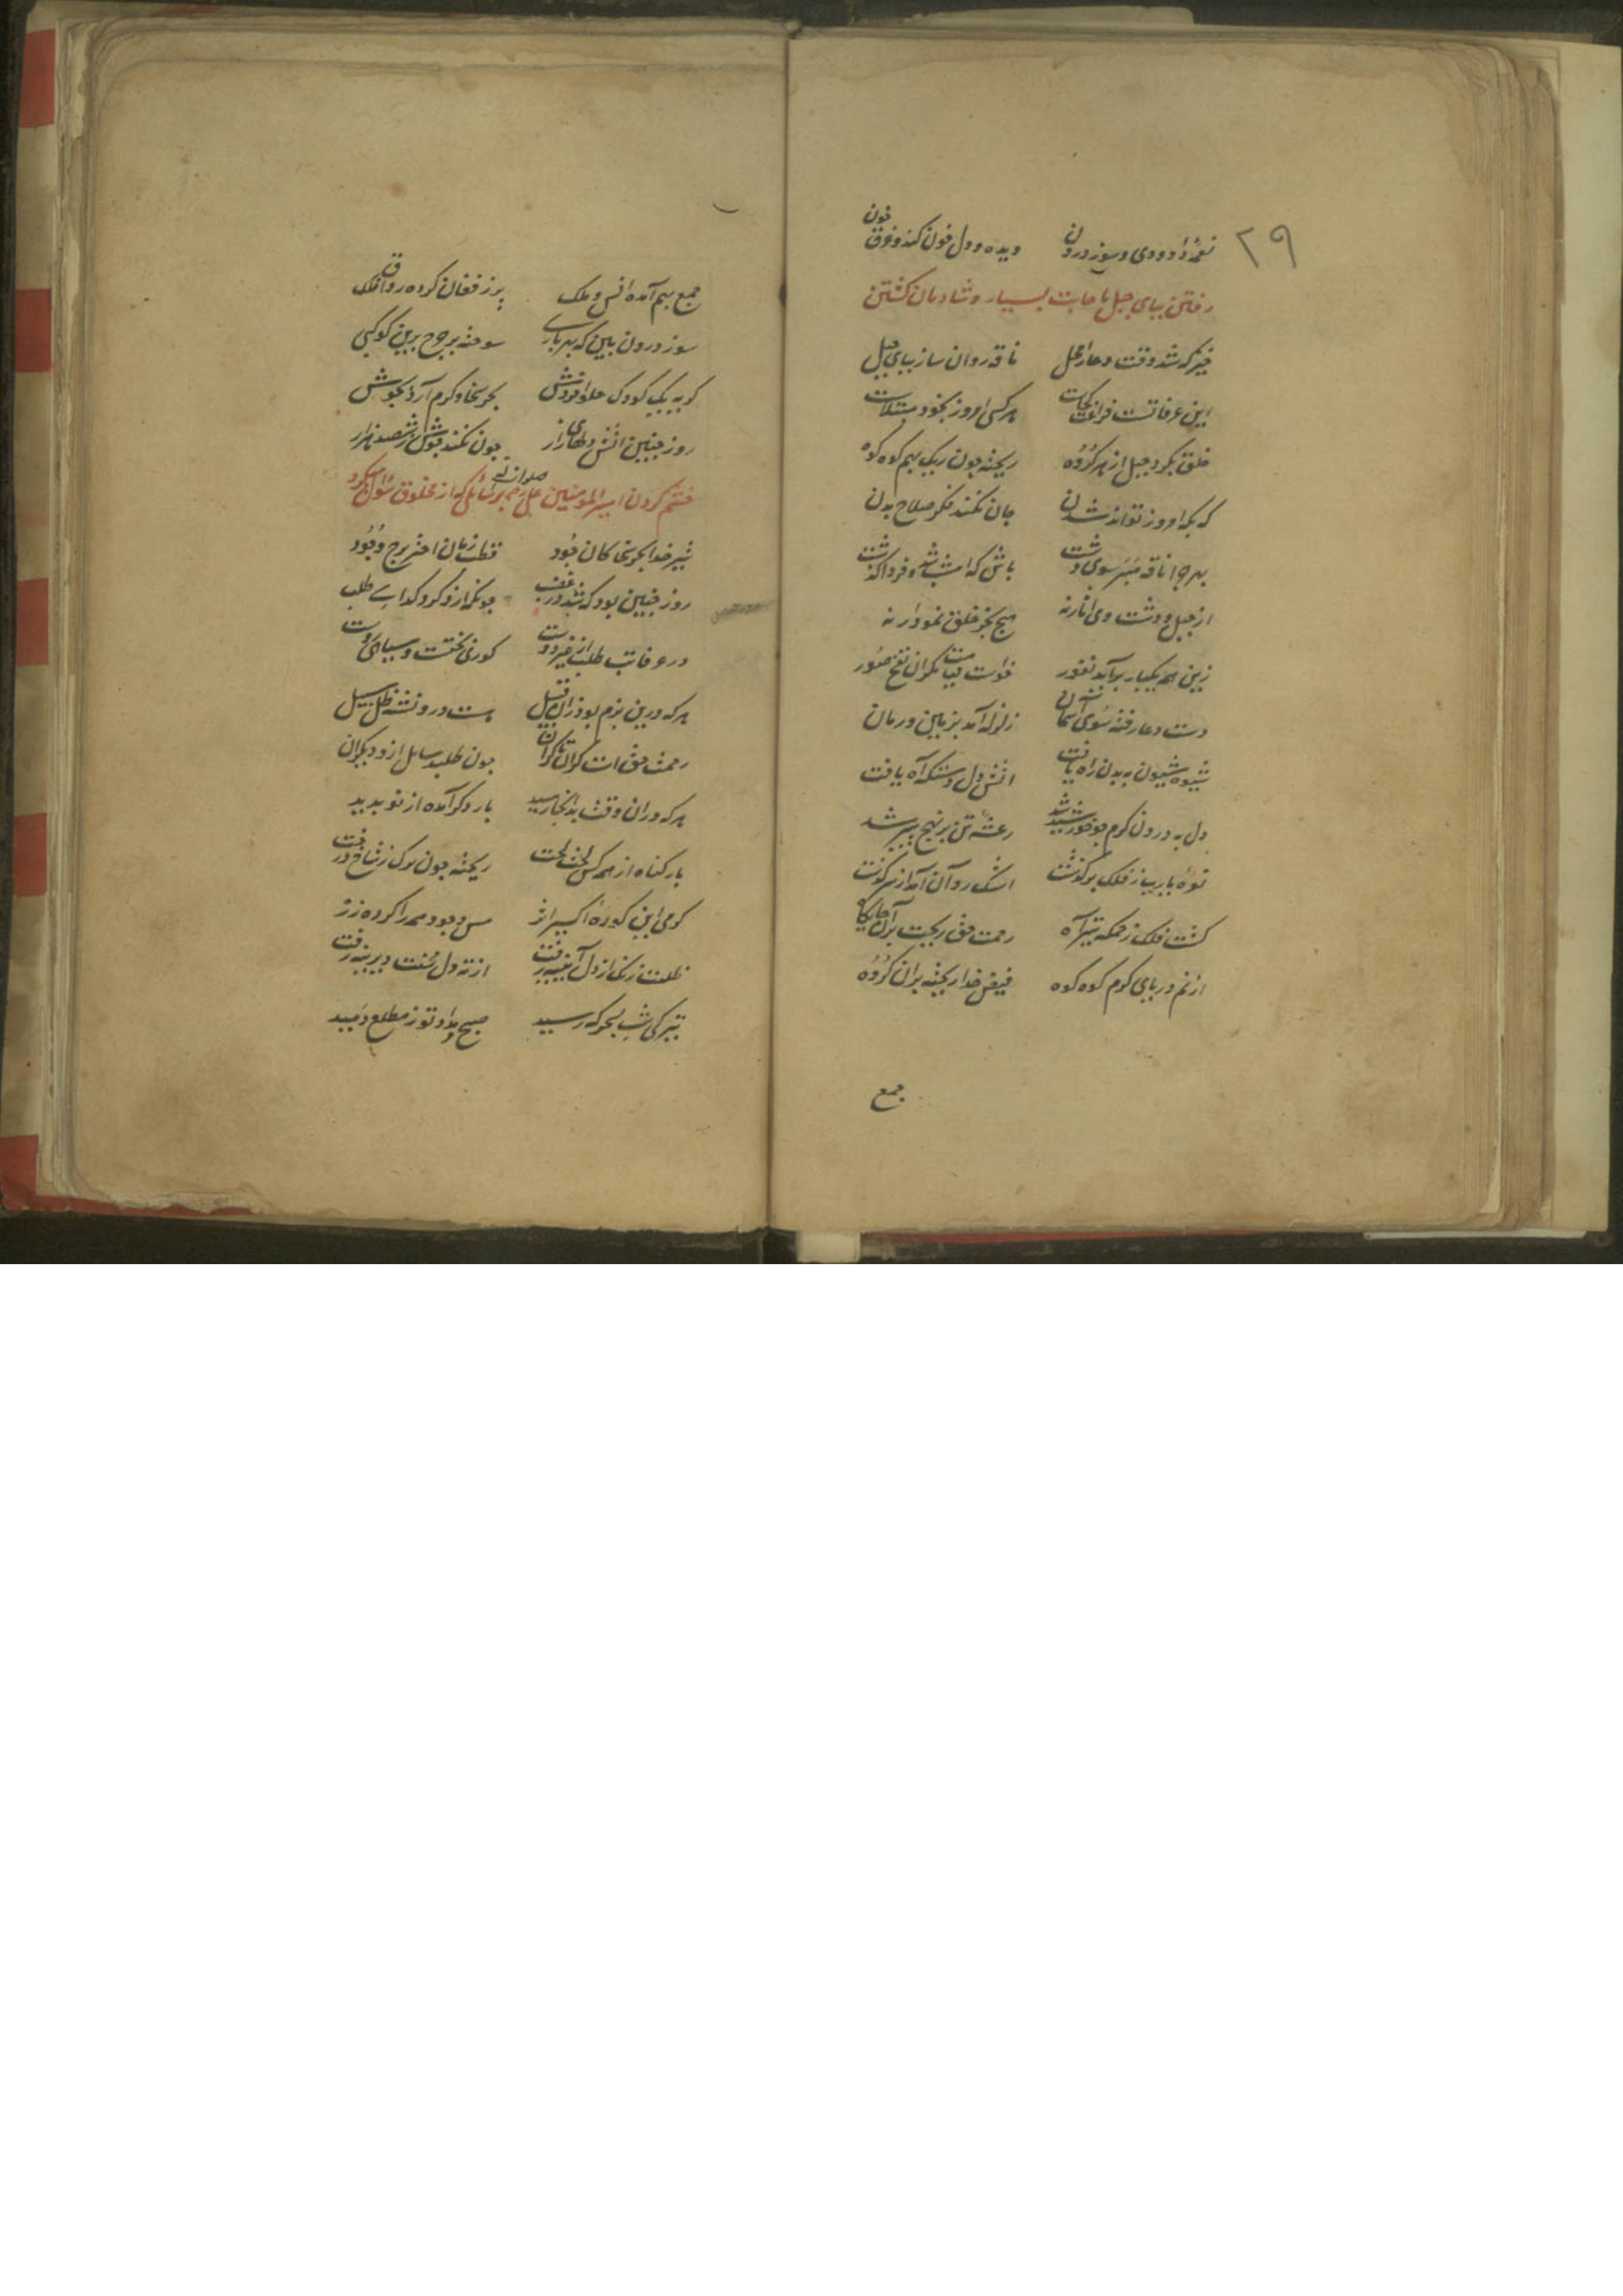 ۲۹
نغمهٔ داودی و سوز درون دیده و دل خون کند و ذوق خون
رفتن بپای جبل با حاجت بسیار و شادمان کشتن
خیز که شد وقت دعا را محل ناقه روان ساز بپای جبل
این عرفاتست هر کسی امروز بخود مبتلاست
خلق بکرد جبل از هر کروه ریخته چون ریک بهم کوه کوه
که بکه امروز تواند شدن جان نکند فکر صلاح بدن
بهر چرا ناقه مبر سوی دشت باش که امشب شد و فردا کذشت
از جبل و دشت وی آثار نه هیچ بجز خلق نمودار نه
زین همه یکبار برآید نفور خواست قیامت مکر از نفخ صور
دست دعا رفته سوی آسمان زلزله آمد بزمین و زمان
شیوه شیون به بدن راه یافت آتش دل دستکه آه یافت
دل به درون کرم چو خورشید شد رعشه تن بر نهج بید شد
نوه یارب ز فلک برکذشت اشک روان آمد از سر کذشت
کشت فلک زمکه تیر آه رحمت حق ریخت بران جایکاه
از نم دریای کرم کوه کوه فیض خدا ریخته بران کروه
جمع
جمع بهم آمده انس و ملک پر ز فغان کرده رواق فلک
سوز درون بین که بهر یاربی سوخته بر چرخ برین کوکبی
کریه یک کودک حلوا فروش بحر سخا و کرم آرد بجوش
روز چنین آتش دلهای زار چون نکند جوش ششصد هزار
خشم کردن امیر المؤمنین علی صلوات الله بر سائلی که از مخلوق سؤال میکرد
شیر خدا بحر سخا کان جود قطب زمان اختر برج وجود
روز چنین بود که شد در غضب چونکه ازو کرد کدایی طلب
در عرفات طلب از غیر دوست کوری بختت و سیاهی روست
هر که درین بزم بود زان قبیل هست درو نشئه ظل سبیل
رحمت حق است کران تا کران چون طلبد سایل ازو دیکران
هر که دران وقت بدانجا رسید بار دکر آمده از نو پدید
بار کناه از همه کس لخت لخت ریخته چون برک ز شاخ درخت
کرمی این کوره اکسیر اثر مس وجود همه را کرده زر
ظلمت زنک از دل آیینه رفت از ته دل خشت دیرینه رفت
تیرکی شب بسحرکه رسید صبح مراد تو ز مطلع دمید